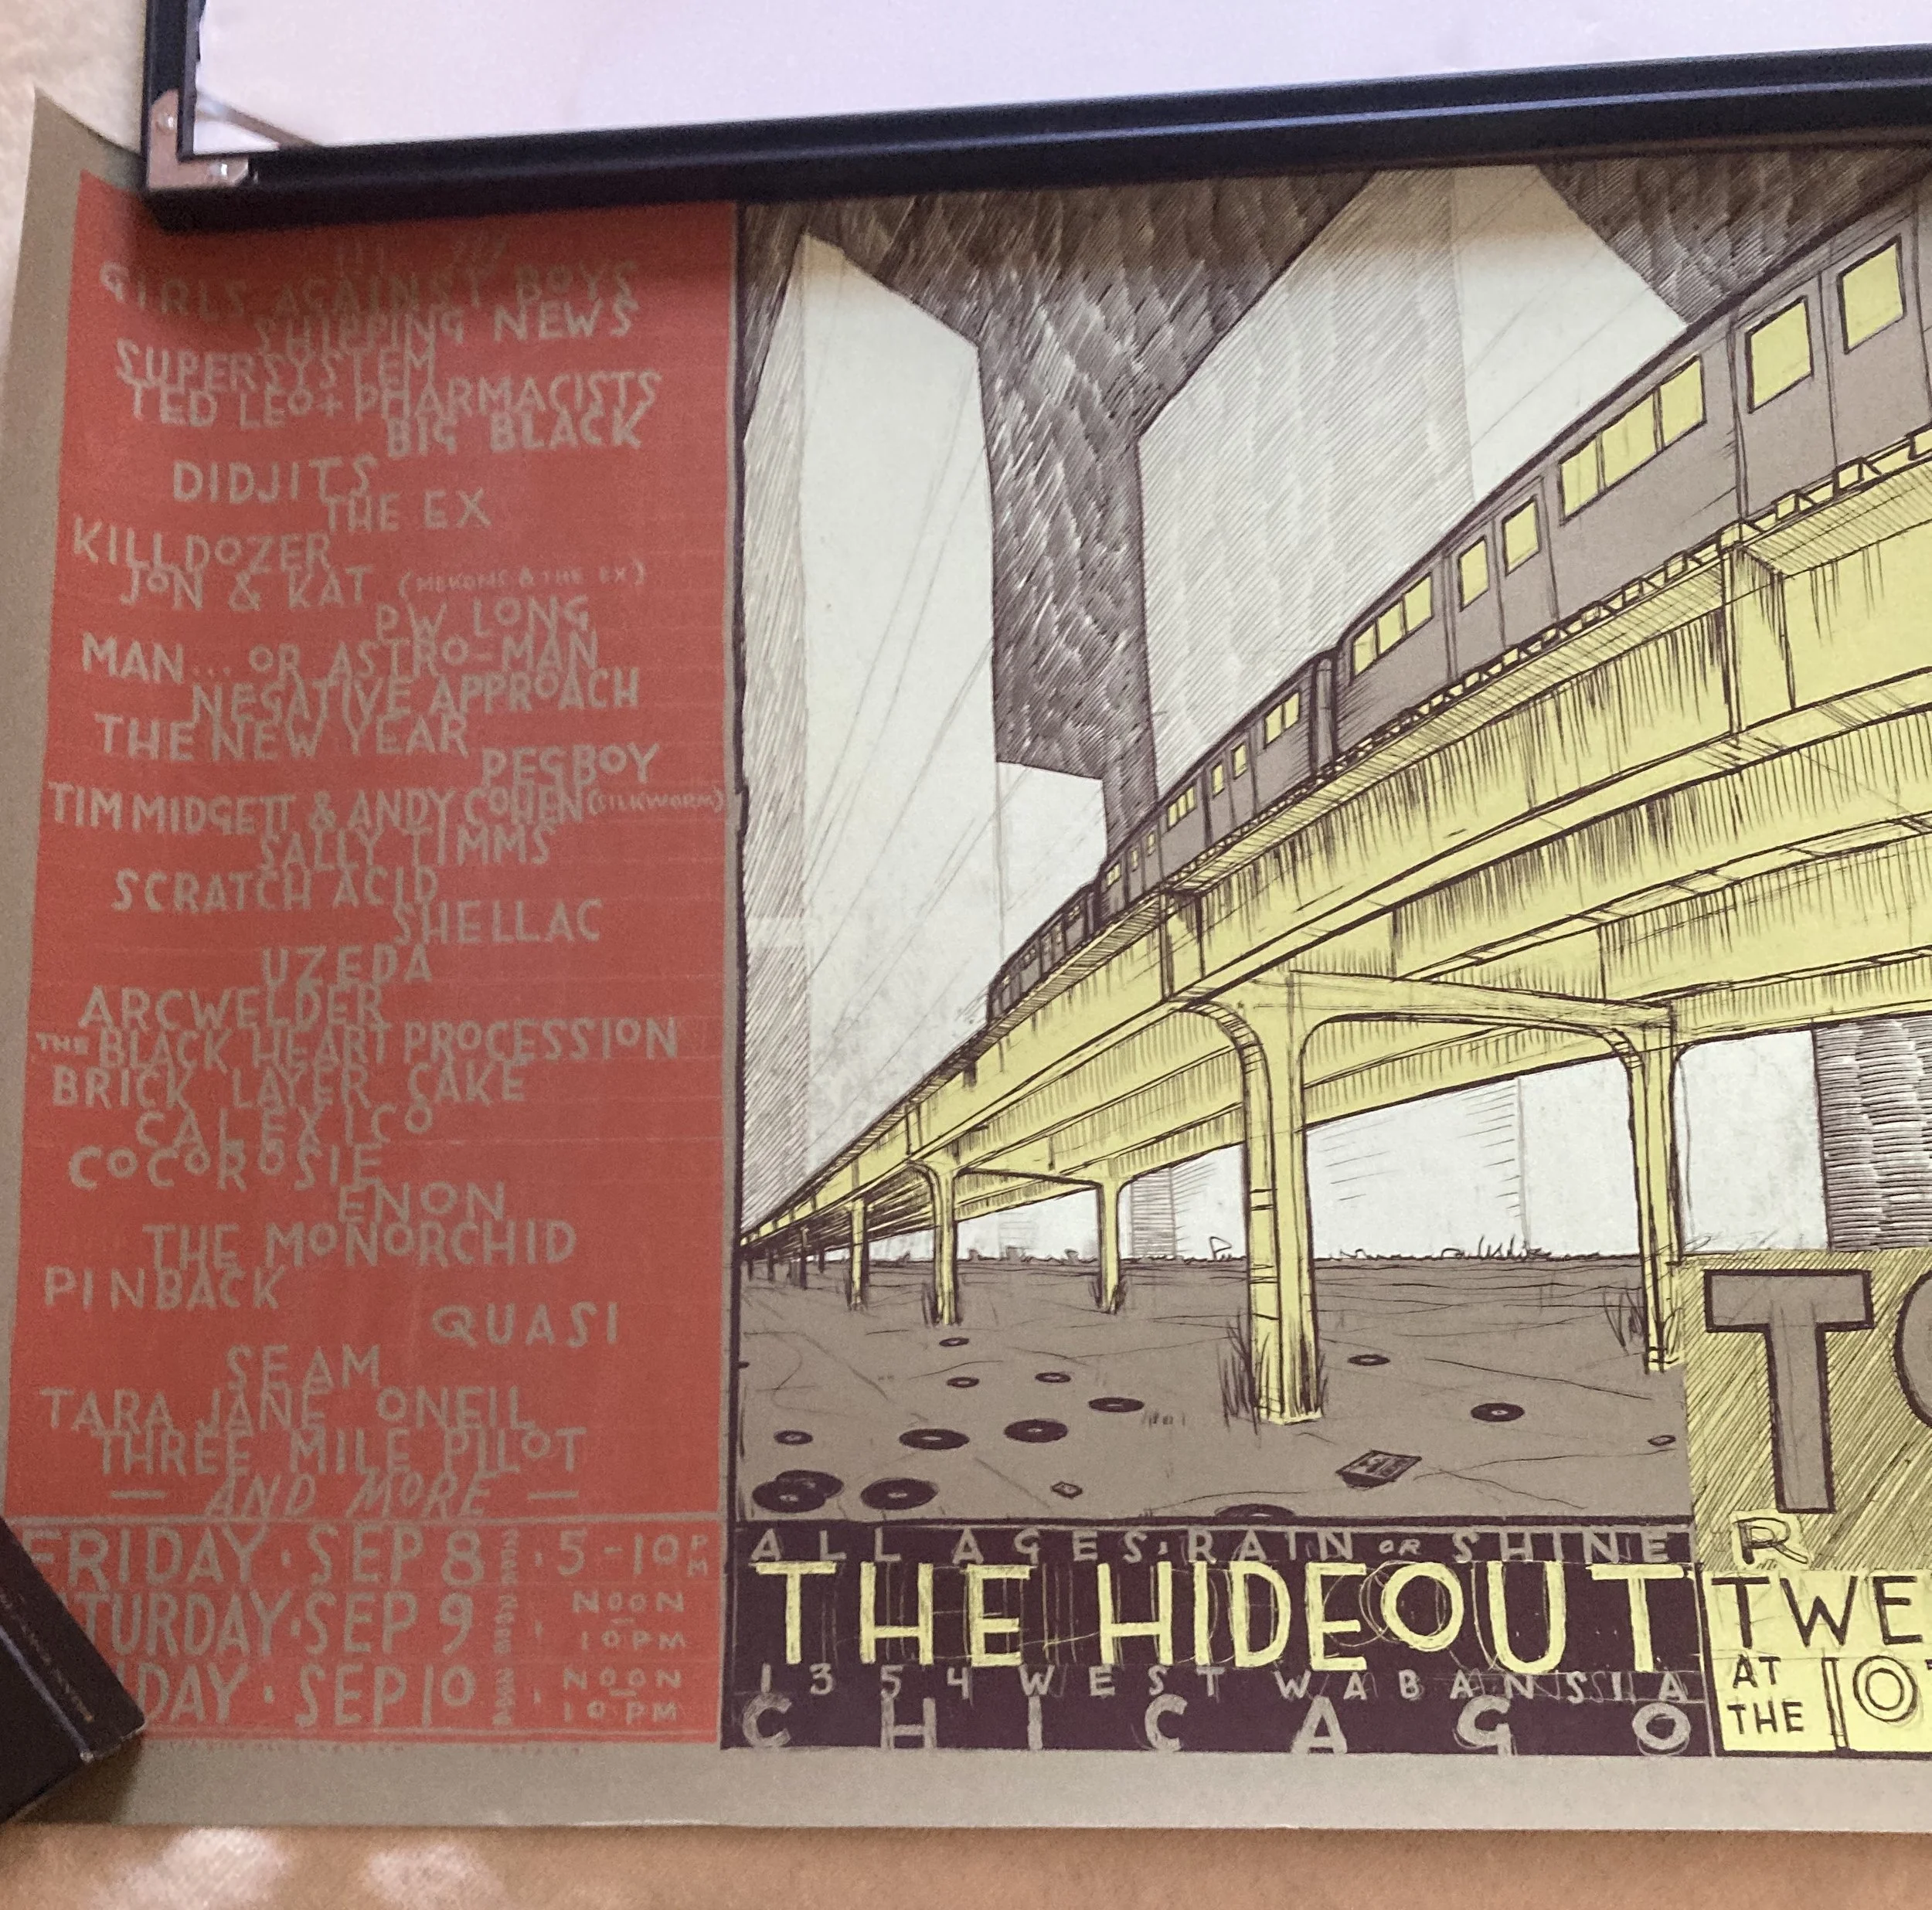 GIRLS AGAINST BOYS
SHIPPING NEWS
SUPERSYSTEM
TED LEO + PHARMACISTS
BIG BLACK
DIDJITS
THE EX
KILLDOZER
JON & KAT (MEKONS & THE EX)
PW LONG
MAN... OR ASTRO-MAN
NEGATIVE APPROACH
THE NEW YEAR
PEGBOY
TIM MIDGETT & ANDY COHEN (SILKWORM)
SALLY TIMMS
SCRATCH ACID
SHELLAC
UZEDA
ARCWELDER
THE BLACK HEART PROCESSION
BRICK LAYER CAKE
CALEXICO
COCOROSIE
ENON
THE MONORCHID
PINBACK
QUASI
SEAM
TARA JANE ONEIL
THREE MILE PILOT
— AND MORE —
FRIDAY · SEP 8 : 5-10 PM
TURDAY · SEP 9 : NOON – 10PM
DAY · SEP 10 : NOON – 10PM
ALL AGES · RAIN OR SHINE
THE HIDEOUT
1354 WEST WABANSIA
CHICAGO
T
R
TWE
AT
THE 10